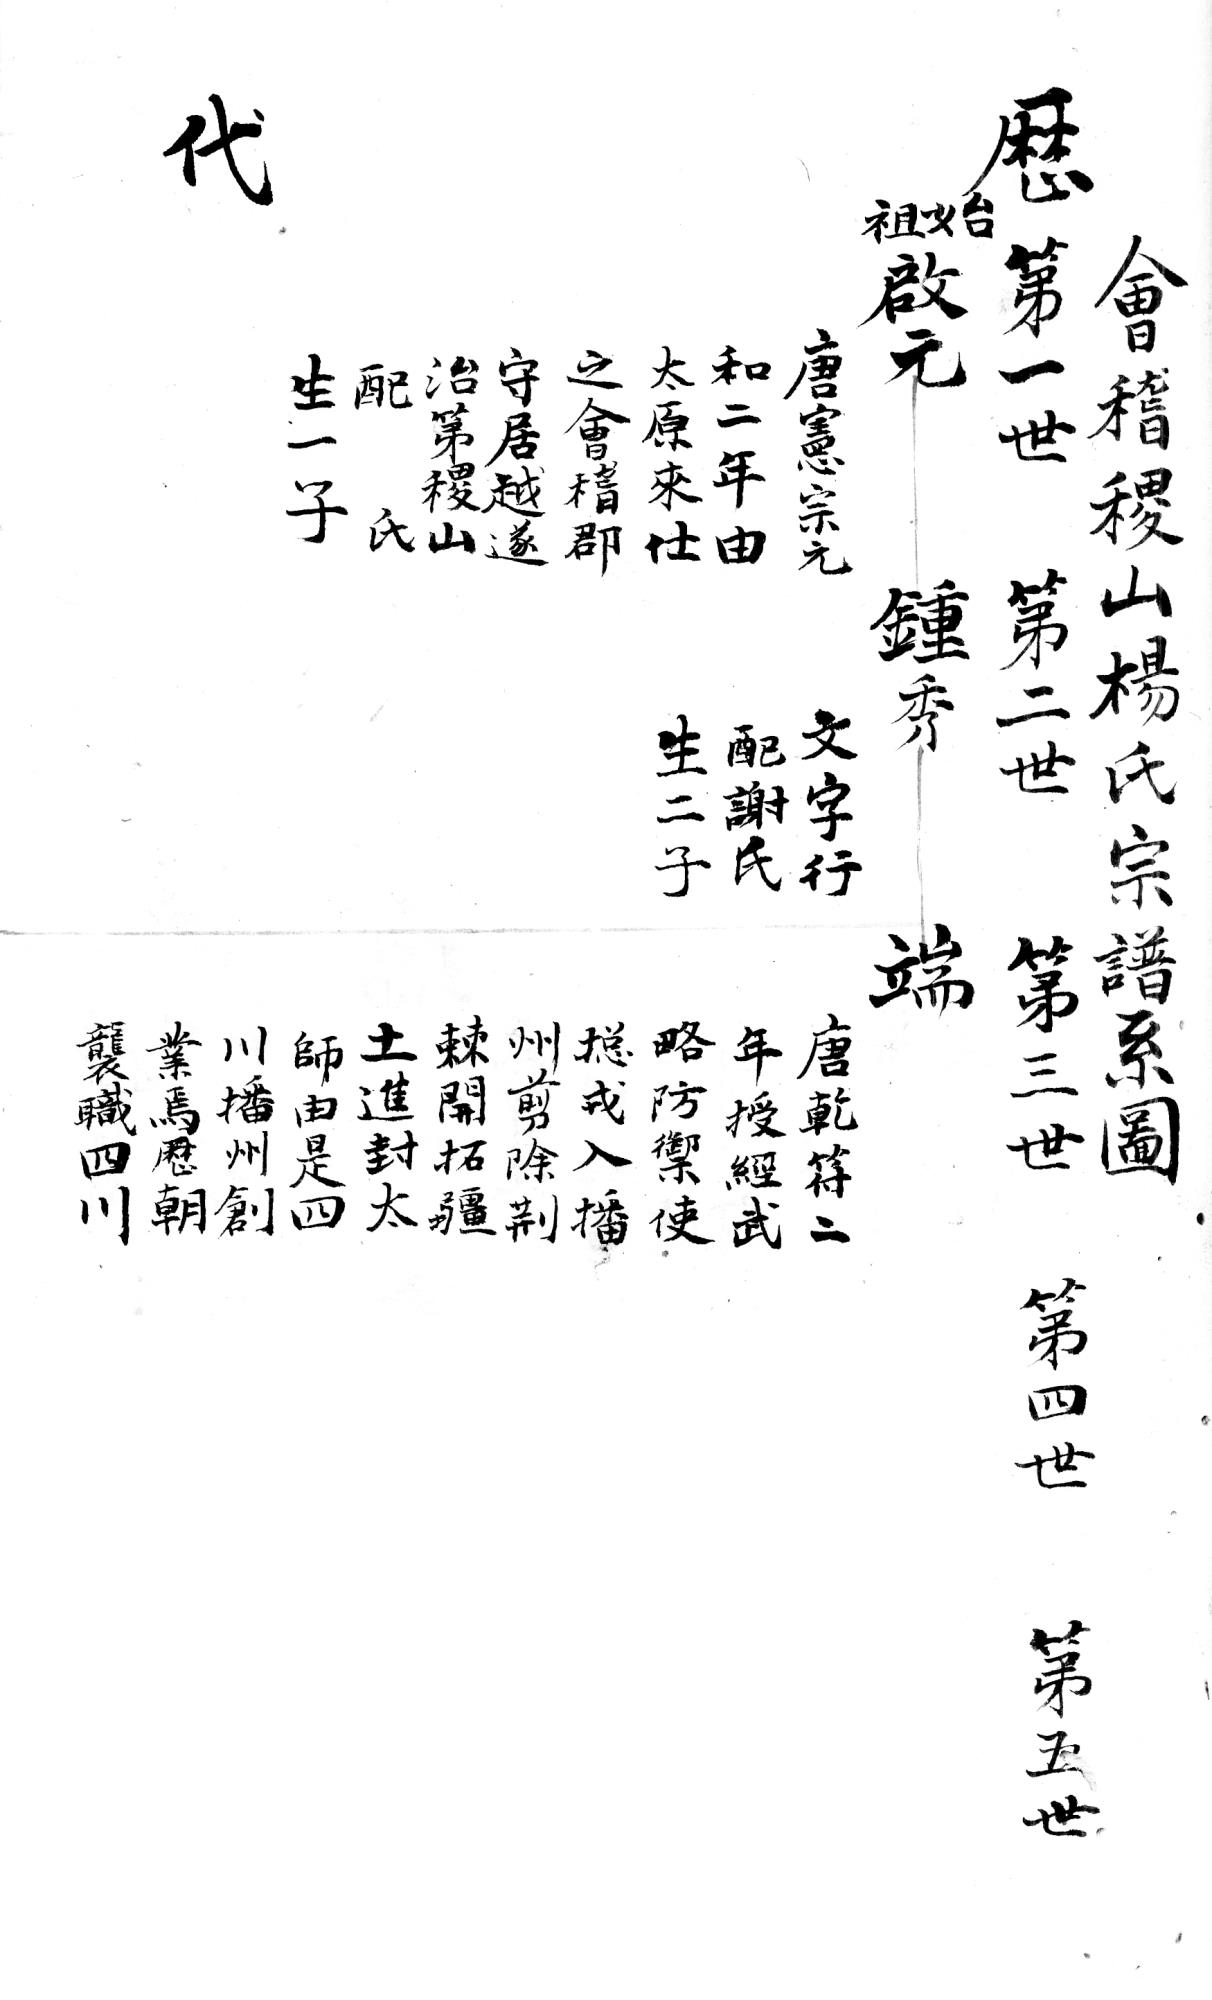 會稽稷山楊氏宗譜系圖
歷
第一世
第二世
第三世
第四世
第五世
始祖
啟元
唐憲宗元
和二年由
太原來仕
之會稽郡
守居越遂
治第稷山
配 氏
生一子
鍾秀
文字行
配謝氏
生二子
端
唐乾符二
年授經武
略防禦使
捴戎入播
州剪除荆
棘開拓疆
土進封太
師由是四
川播州創
業焉歷朝
襲職四川
代